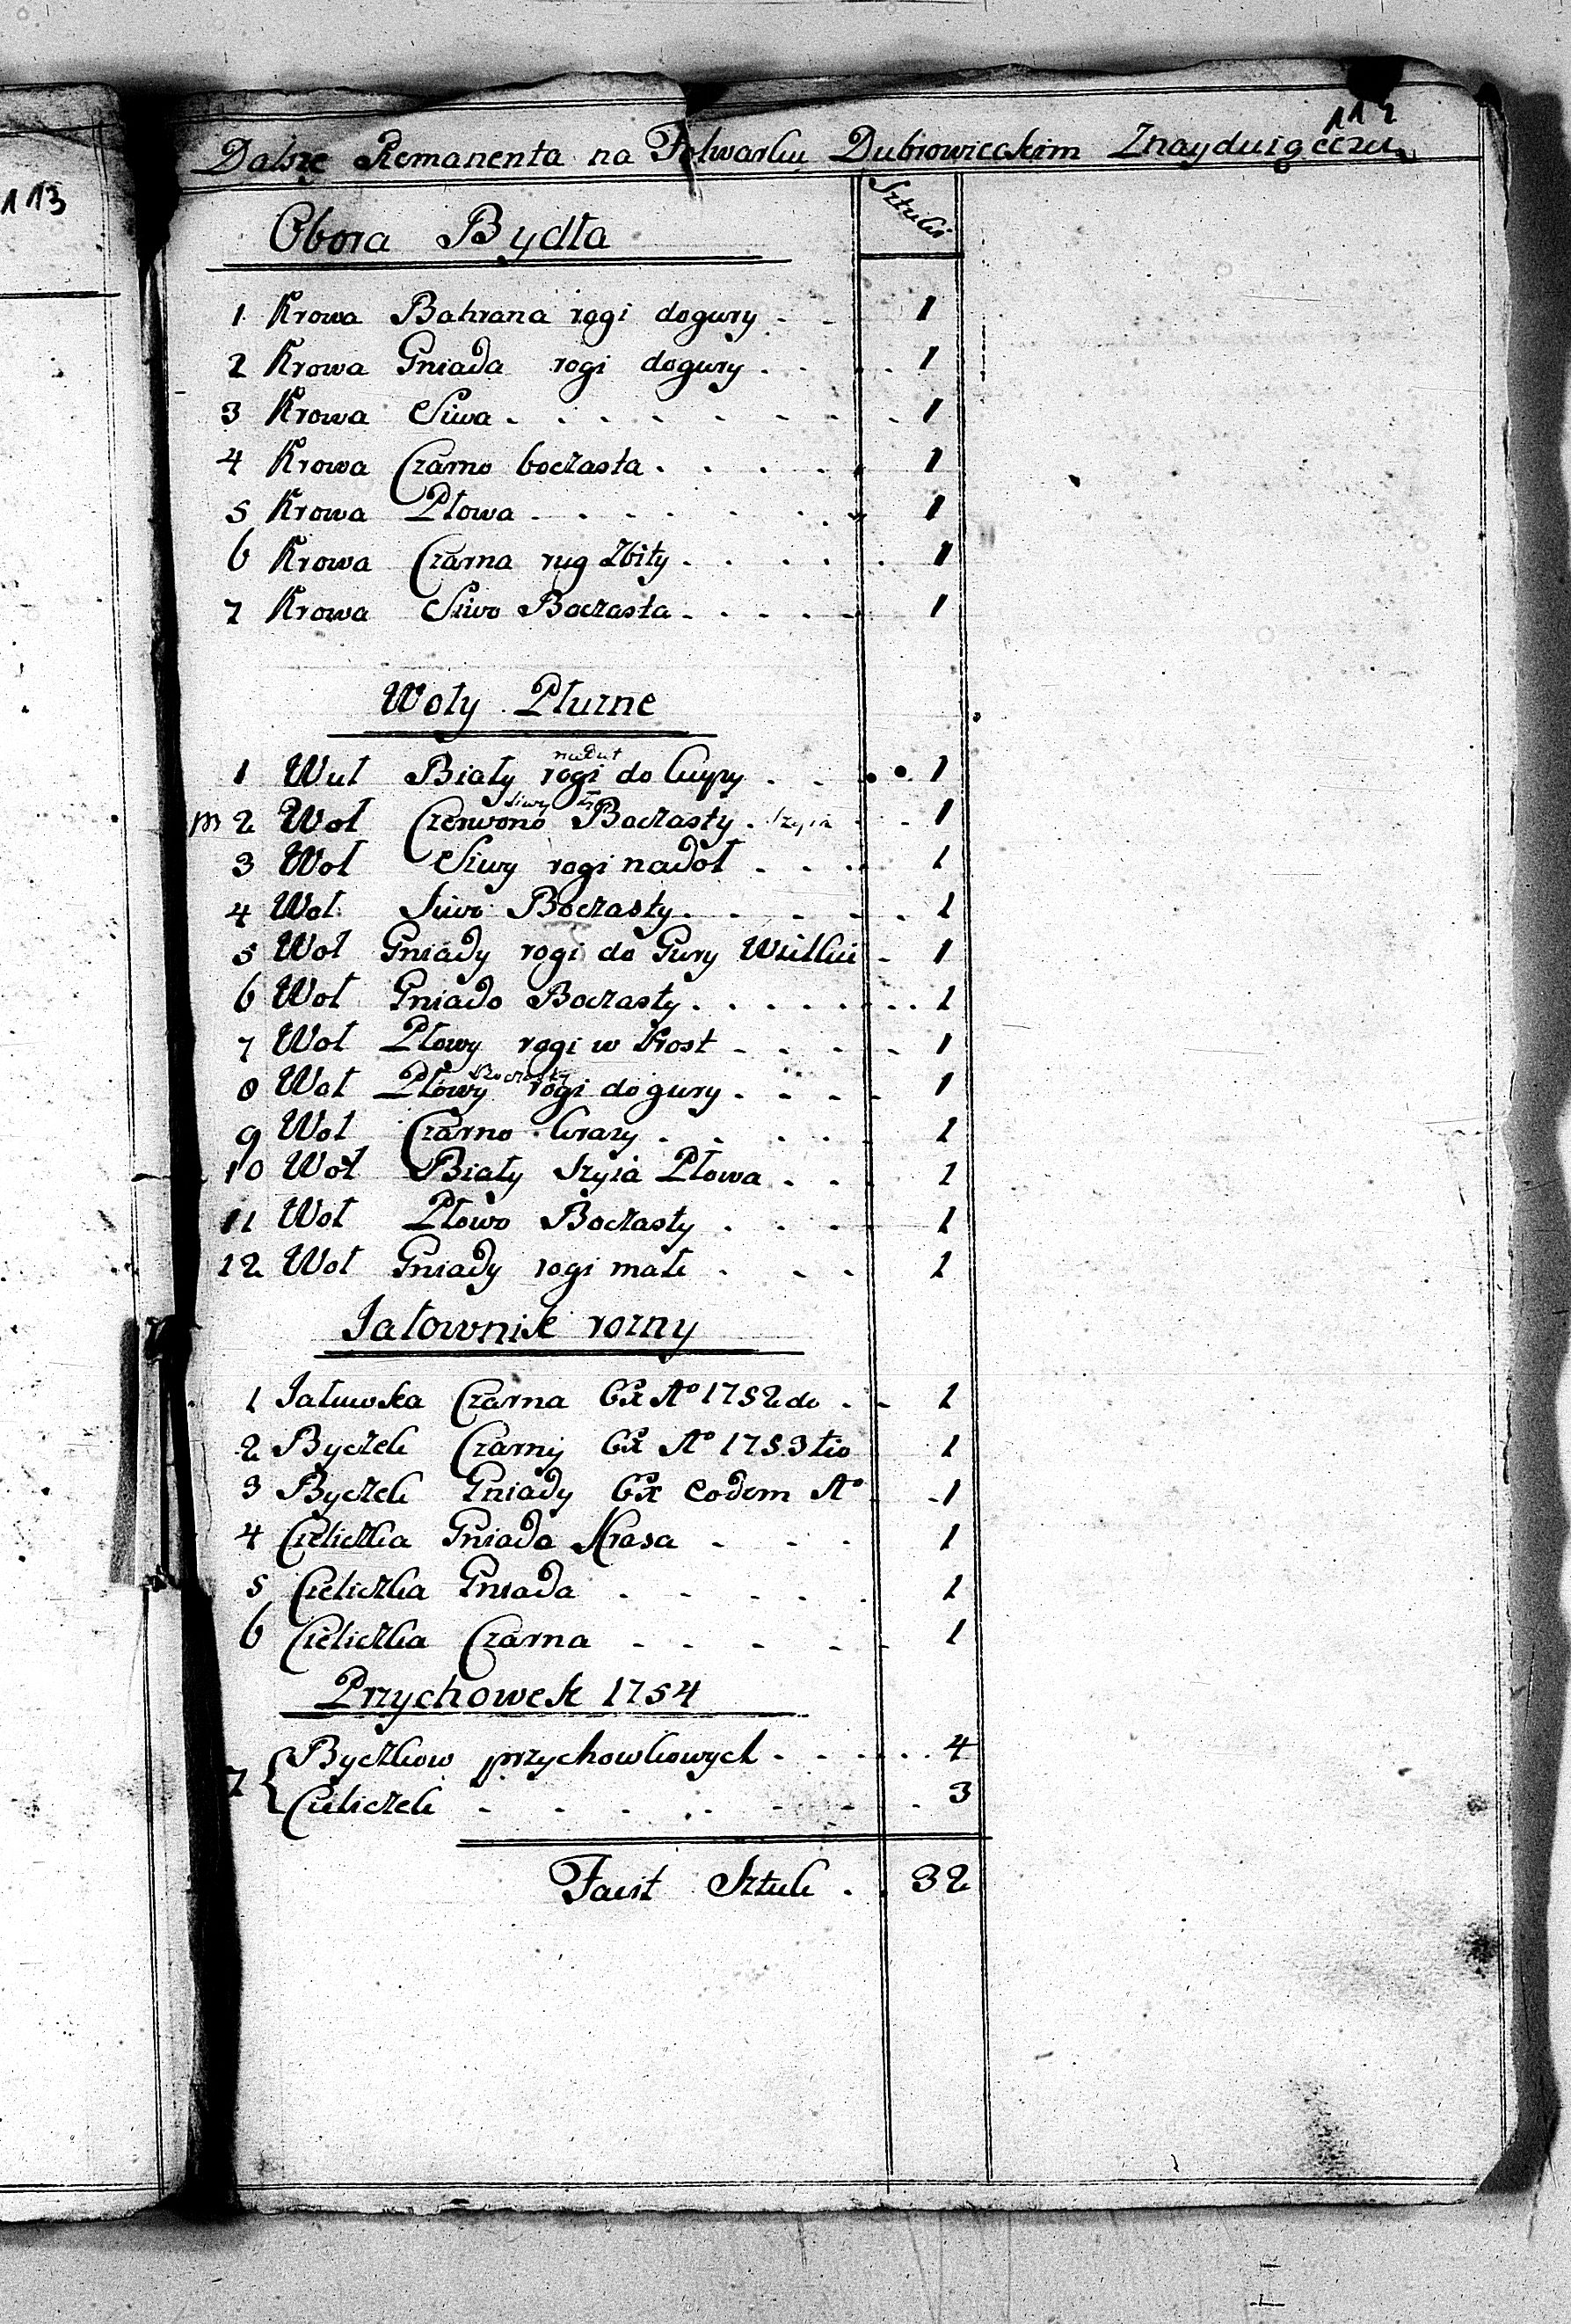 113
114
Dalsze Remanenta na Folwarku Dubrowieckim Znayduiące się
Sztuki
Obora Bydła
1 Krowa Bahrana rogi dogury - - 1
2 Krowa Gniada rogi dogury . . . . 1
3 Krowa Siwa . . . . . . . . 1
4 Krowa Czarno boczasta . . . . . 1
5 Krowa Płowa . . . . . . . 1
6 Krowa Czarna rug zbity . . . . . 1
7 Krowa Siwo Boczasta . . . . . 1
Woły Płuzne
nadut
1 Wuł Biały rogi do Gury . . . . 1
Siwy
m 2 Woł Czerwono Boczasty . Szyia . . 1
3 Woł Siwy rogi nadoł . . . . 1
4 Woł Siwo Boczasty . . . . . . 1
5 Woł Gniady rogi do Gury Wielkie - 1
6 Woł Gniado Boczasty . . . . . . . 1
7 Woł Płowy rogi w Prost - - - - 1
Boczasty
8 Woł Płowy rogi do gury . . . . 1
9 Woł Czarno Krasy . . . . . 1
10 Woł Biały Szyia Płowa . . . 1
11 Woł Płowo Boczasty . . . . 1
12 Woł Gniady rogi małe . . . 1
Jałownik rozny
1 Jałuwka Czarna Ex Aº 1752do . - 1
2 Byczek Czarny Ex Aº 1753tio 1
3 Byczek Gniady Ex Eodem Aº - 1
4 Cieliczka Gniada Krasa . . . 1
5 Cieliczka Gniada . . . . . 1
6 Cieliczka Czarna - - - - - 1
Przychowek 1754
7 { Byczkow przychowkowych . . . . . . 4
Cieliczek - - - - - - - . 3
Facit Sztuk . . 32